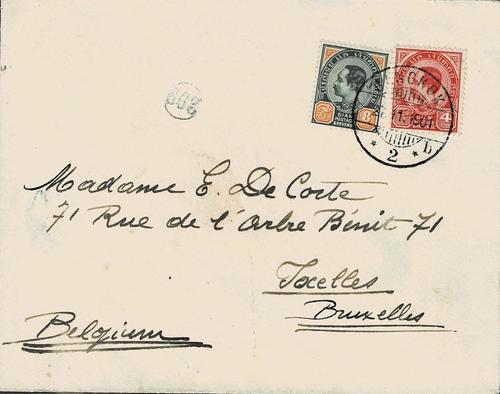 BANGKOK
11. 1901
2
SIAM
POSTAGE
& REVENUE
8
4
Madame E. De Corte
71 Rue de l'Arbre Bénit 71
Ixelles
Bruxelles
Belgium